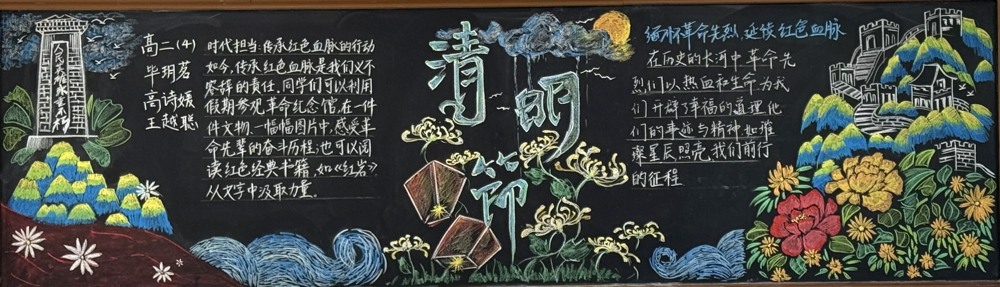 人民英雄永垂不朽
高二(4)
毕玥茗
高诗媛
王越聪
时代担当:传承红色血脉的行动
如今,传承红色血脉是我们义不
容辞的责任,同学们可以利用
假期参观革命纪念馆,在一件
件文物,一幅幅图片中,感受革
命先辈的奋斗历程;也可以阅
读红色经典书籍,如《红岩》
从文字中汲取力量.
清明节
缅怀革命先烈 延续红色血脉
在历史的长河中,革命先
烈们以热血和生命为我
们开辟了幸福的道理,他
们的事迹与精神,如璀
璨星辰照亮我们前行
的征程